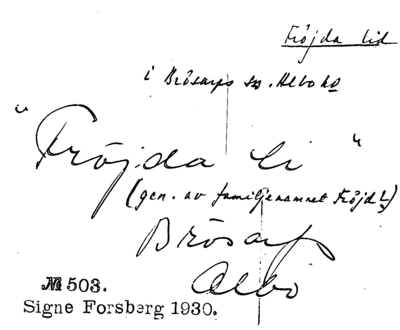 Fröjda lid
i Brösarps sn. Albo hd
"Fröjda li"
(gen. av familjenamnet Fröjd?)
Brösarp
Albo
№ 503.
Signe Forsberg 1930.